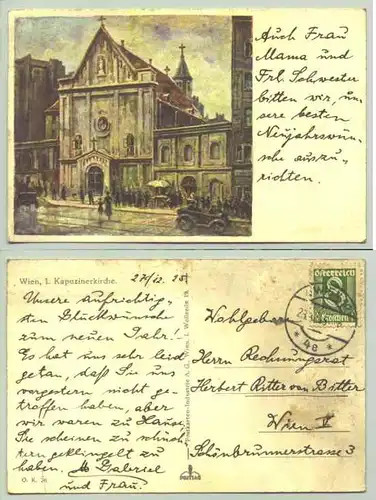 Auch Frau
Mama und
Frl. Schwester
bitten wir, un-
sere besten
Neujahrswün-
sche auszu-
richten.
Wien, I. Kapuzinerkirche.
27/12. 25.
Unsere aufrichtig-
sten Glückwünsche
zum neuen Jahr!
Es hat uns sehr leid
getan, daß Sie uns
vorgestern nicht ge-
troffen haben, aber
wir waren zu Hause,
Sie scheinen zu schüch-
tern geklingelt zu
haben. Gabriel
und Frau.
O. K. 26
Postkarten-Industrie A. G., Wien, I. Wollzeile 19.
Österreich
8
Groschen
4e
Wohlgeboren
Herrn Rechnungsrat
Herbert Ritter von Bitter
Wien V
Schönbrunnerstrasse 3